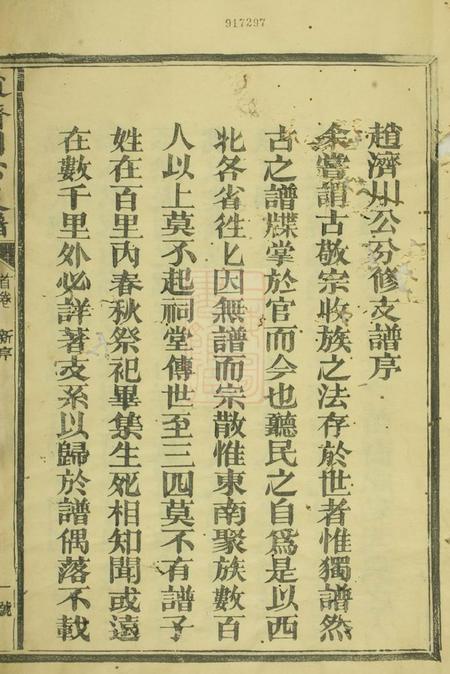 917297
趙濟川公分修支譜序
余嘗謂古敬宗收族之法存於世者惟獨譜然
古之譜牒掌於官而今也聽民之自爲是以西
北各省徃匕因無譜而宗散惟東南聚族數百
人以上莫不起祠堂傳世至三四莫不有譜子
姓在百里內春秋祭祀畢集生死相知聞或遠
在數千里外必詳著支系以歸於譜偶落不載
首卷 新序
一號